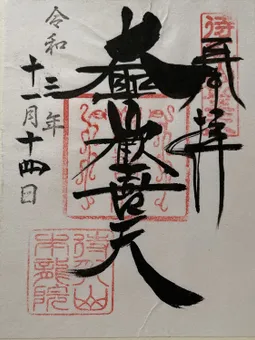 奉拝
大聖歡喜天
令和三年
十一月十四日
待乳山
本龍院